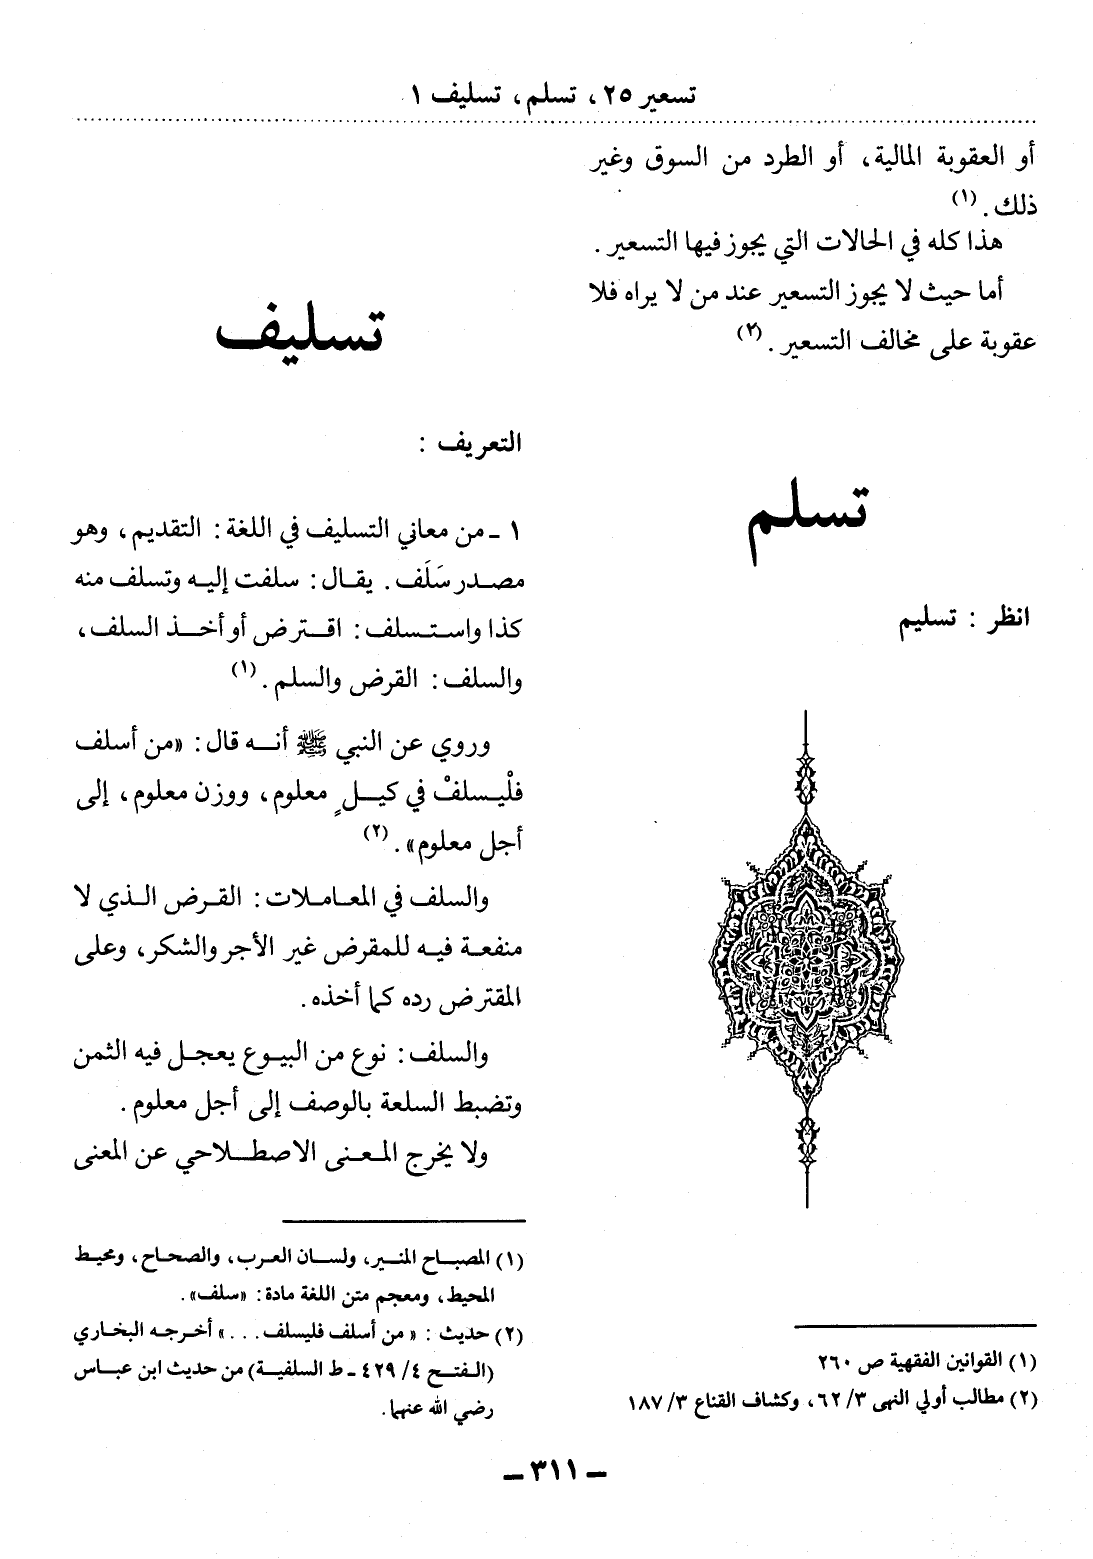 تسعير ٢٥، تسلم، تسليف ١
أو العقوبة المالية، أو الطرد من السوق وغير
ذلك. (١)
هذا كله في الحالات التي يجوز فيها التسعير.
أما حيث لا يجوز التسعير عند من لا يراه فلا
عقوبة على مخالف التسعير. (٢)
تسلم
انظر : تسليم
(١) القوانين الفقهية ص ٢٦٠
(٢) مطالب أولي النهى ٣/ ٦٢، وكشاف القناع ٣/ ١٨٧
تسليف
التعريف :
١ ـ من معاني التسليف في اللغة: التقديم، وهو
مصدر سَلَف. يقال: سلفت إليه وتسلف منه
كذا واستسلف: اقترض أو أخذ السلف،
والسلف: القرض والسلم. (١)
وروي عن النبي ﷺ أنه قال: «من أسلف
فلْيسلفْ في كيلٍ معلوم، ووزن معلوم، إلى
أجل معلوم». (٢)
والسلف في المعاملات: القرض الذي لا
منفعة فيه للمقرض غير الأجر والشكر، وعلى
المقترض رده كما أخذه.
والسلف: نوع من البيوع يعجل فيه الثمن
وتضبط السلعة بالوصف إلى أجل معلوم.
ولا يخرج المعنى الاصطلاحي عن المعنى
(١) المصباح المنير، ولسان العرب، والصحاح، ومحيط
المحيط، ومعجم متن اللغة مادة: «سلف».
(٢) حديث : « من أسلف فليسلف. . . » أخرجه البخاري
(الفتح ٤/ ٤٢٩ ـ ط السلفية) من حديث ابن عباس
رضي الله عنهما.
ـ ٣١١ ـ